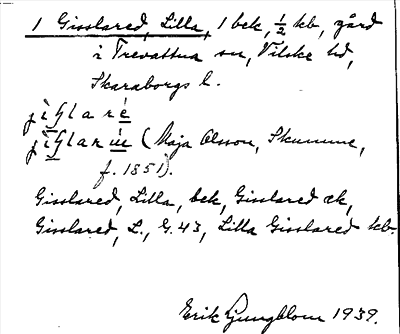 1 Gisslared, Lilla, 1 bek, ½ kb, gård
i Trevattna sn, Vilske hd,
Skaraborgs l.
(Maja Olsson, Skumme,
f. 1851).
Gisslared, Lilla, bek, Gisslared æk,
Gisslared, L., G. 43, Lilla Gisslared kb.
Erik Ljungblom 1939.